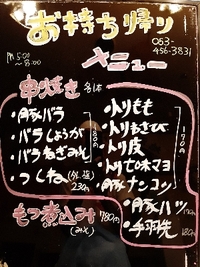 お持ち帰り
メニュー
PM 5:00
～8:00
053-
456-3831
串焼き 各1本
・豚バラ
・バラしょうが
・バラねぎみそ
・つくね
230円
・トリもも
・トリわさび
・トリ皮
・トリ七味マヨ
・豚ナンコツ
170円
・豚ハツ 170円
・手羽先 180円
もつ煮込み 780円
(みそ)